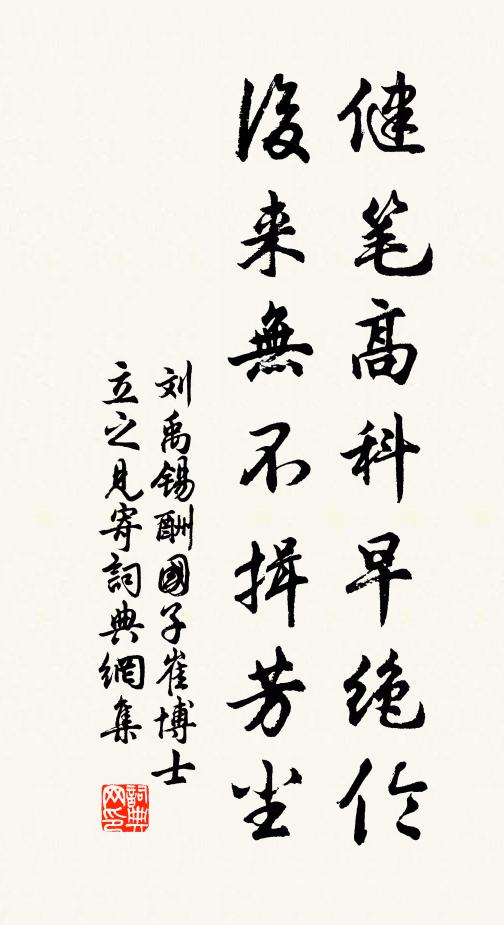 健笔高科早绝伦
後来無不揖芳尘
刘禹锡酬國子崔博士
立之见寄詞典網集
詞典网印